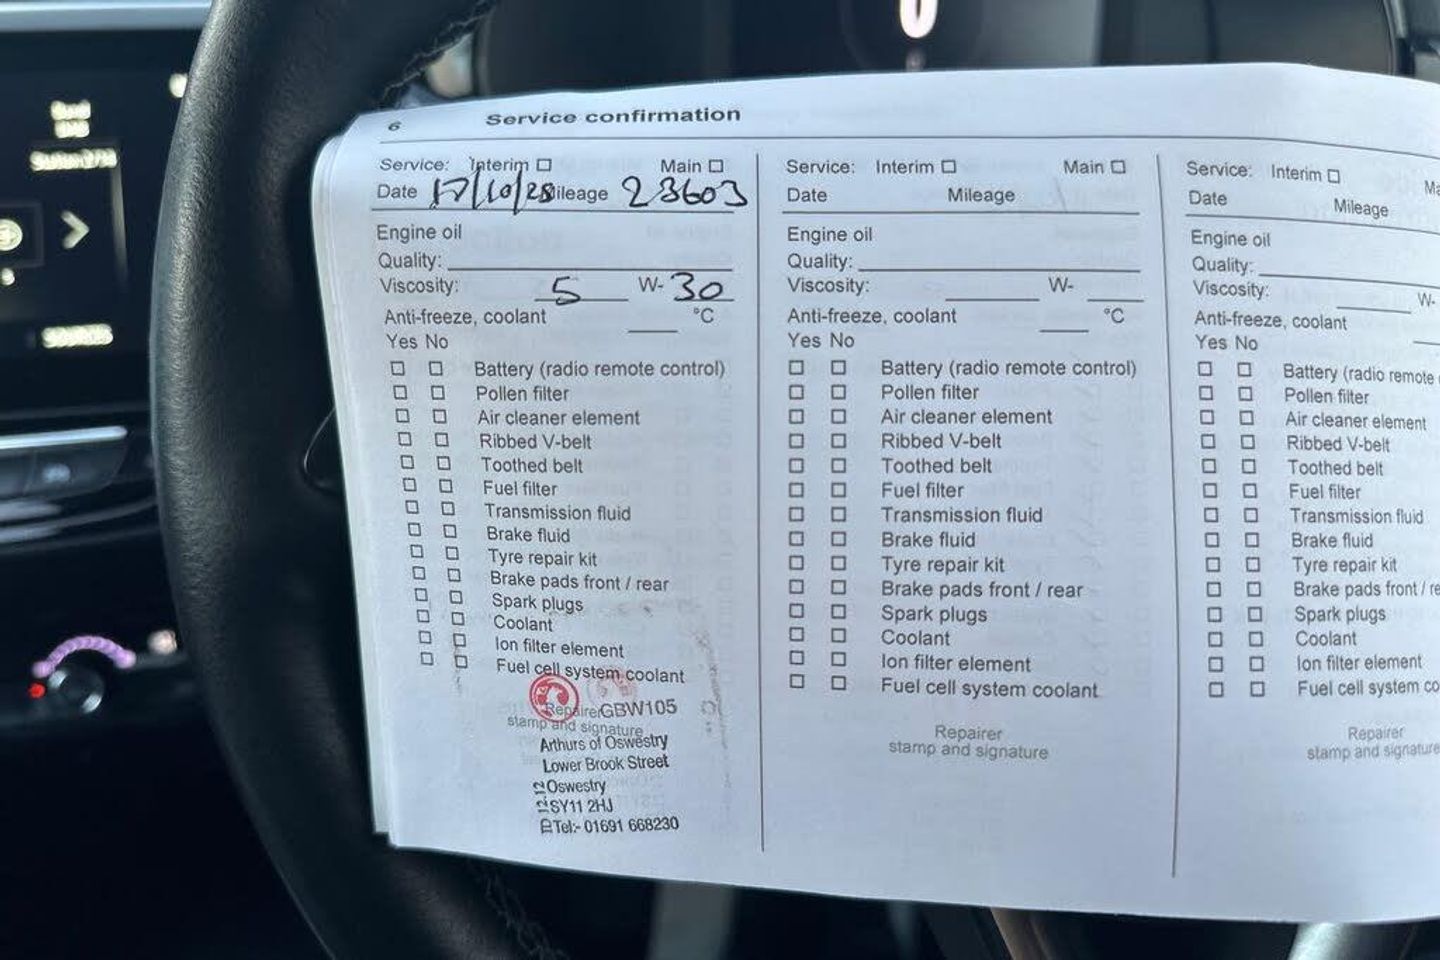 6 Service confirmation
Service: Interim Main
Date 17/10/23 Mileage 23603
Engine oil
Quality:
Viscosity: 5 W-30
Anti-freeze, coolant °C
Yes No
Battery (radio remote control)
Pollen filter
Air cleaner element
Ribbed V-belt
Toothed belt
Fuel filter
Transmission fluid
Brake fluid
Tyre repair kit
Brake pads front / rear
Spark plugs
Coolant
Ion filter element
Fuel cell system coolant
Repairer GBW105
stamp and signature
Arthurs of Oswestry
Lower Brook Street
Oswestry
SY11 2HJ
Tel:- 01691 668230
Service: Interim Main
Date Mileage
Engine oil
Quality:
Viscosity: W-
Anti-freeze, coolant °C
Yes No
Battery (radio remote control)
Pollen filter
Air cleaner element
Ribbed V-belt
Toothed belt
Fuel filter
Transmission fluid
Brake fluid
Tyre repair kit
Brake pads front / rear
Spark plugs
Coolant
Ion filter element
Fuel cell system coolant
Repairer
stamp and signature
Service: Interim Ma
Date Mileage
Engine oil
Quality:
Viscosity: W-
Anti-freeze, coolant
Yes No
Battery (radio remote
Pollen filter
Air cleaner element
Ribbed V-belt
Toothed belt
Fuel filter
Transmission fluid
Brake fluid
Tyre repair kit
Brake pads front / re
Spark plugs
Coolant
Ion filter element
Fuel cell system co
Repairer
stamp and signature